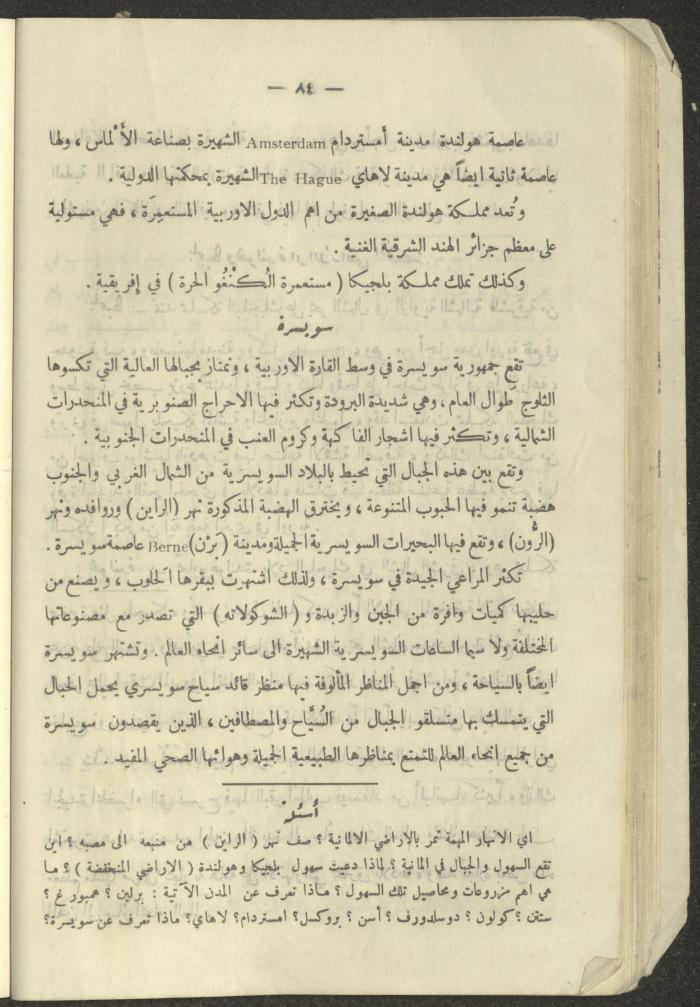 — ٨٤ —
عاصمة هولندة مدينة أمستردام Amsterdam الشهيرة بصناعة الأَلماس ، ولها
عاصمة ثانية ايضاً هي مدينة لاهاي The Hague الشهيرة بمحكمتها الدولية .
وتُعد مملكة هولندة الصغيرة من اهم الدول الاوربية المستعمِرَة ، فهي مستولية
على معظم جزائر الهند الشرقية الغنية .
وكذلك تملك مملكة بلجيكا ( مستعمرة الْكُنْغُو الحرة ) في إفريقية .
سويسرة
تقع جمهورية سويسرة في وسط القارة الاوربية ، وتمتاز بجبالها العالية التي تكسوها
الثلوج طَوال العام ، وهي شديدة البرودة وتكثر فيها الاحراج الصنوبرية في المنحدرات
الشمالية ، وتكثر فيها اشجار الفاكهة وكروم العنب في المنحدرات الجنوبية .
وتقع بين هذه الجبال التي تُحيط بالبلاد السويسرية من الشمال الغربي والجنوب
هضبة تنمو فيها الحبوب المتنوعة ، ويخترق الهضبة المذكورة نهر (الراين) وروافده ونهر
(الرُّون) ، وتقع فيها البحيرات السويسرية الجميلة ومدينة (بَرْن) Berne عاصمة سويسرة .
تكثر المراعي الجيدة في سويسرة ، ولذلك اشتهرت ببقرها الحَلوب ، ويصنع من
حليبها كميات وافرة من الجبن والزبدة و ( الشوكولاته ) التي تصدر مع مصنوعاتها
المختلفة ولا سيما الساعات السويسرية الشهيرة الى سائر انحاء العالم . وتشتهر سويسرة
ايضاً بالسياحة ، ومن اجمل المناظر المألوفة فيها منظر قائد سياح سويسري يحمل الحبال
التي يتمسك بها متسلقو الجبال من السُيَّاح والمصطافين ، الذين يقصدون سويسرة
من جميع انحاء العالم للتمتع بمناظرها الطبيعية الجميلة وهوائها الصحي المفيد .
أسئلة
اي الانهار المهمة تمر بالاراضي الالمانية ؟ صف نهر ( الراين ) من منبعه الى مصبه ؟ اين
تقع السهول والجبال في المانية ؟ لماذا دعيت سهول بلجيكا وهولندة ( الاراضي المنخفضة ) ؟ ما
هي اهم مزروعات ومحاصيل تلك السهول ؟ ماذا تعرف عن المدن الآتية : برلين ؟ همبورغ ؟
ستتن ؟ كولون ؟ دوسلدورف ؟ أسن ؟ بروكسل ؟ امستردام ؟ لاهاي ؟ ماذا تعرف عن سويسرة ؟